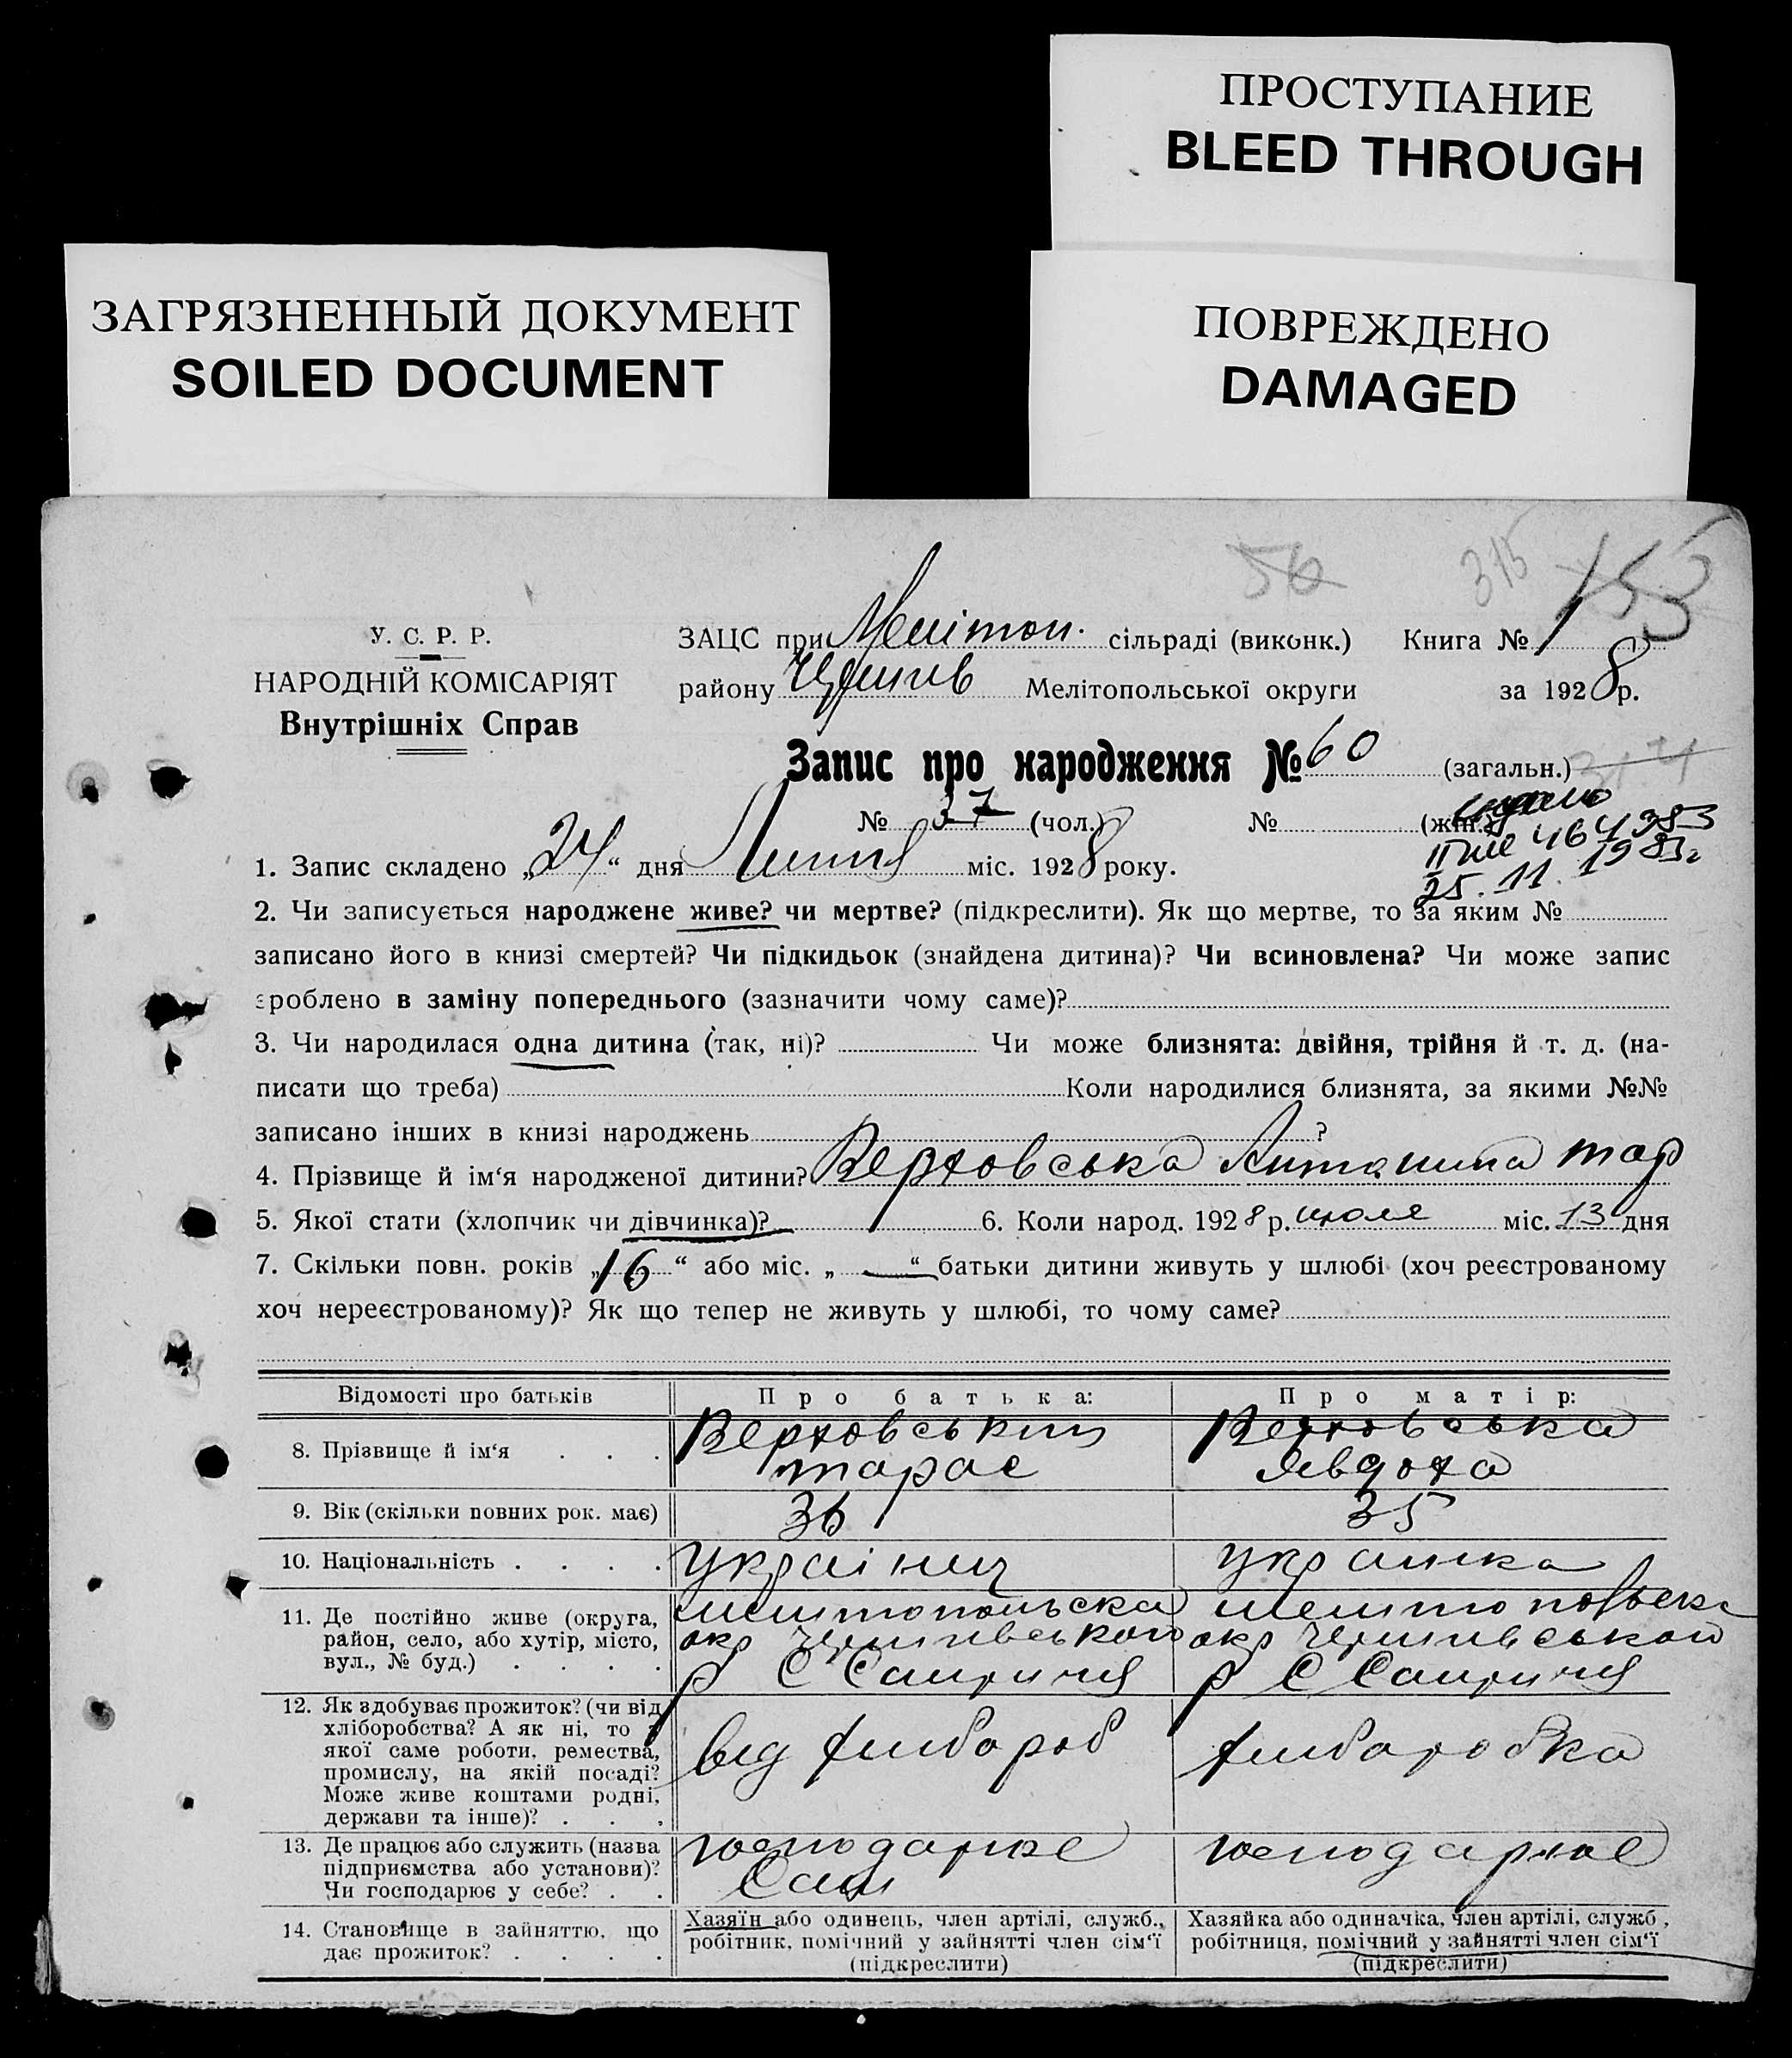 ПРОСТУПАНИЕ
BLEED THROUGH
ЗАГРЯЗНЕННЫЙ ДОКУМЕНТ
SOILED DOCUMENT
ПОВРЕЖДЕНО
DAMAGED
56 315 153
У. С. Р. Р.
НАРОДНІЙ КОМІСАРІЯТ
Внутрішніх Справ
ЗАЦС при Мелітоп. сільраді (виконк.) Книга № 1
району Мелітопольської округи за 1928 р.
Запис про народження № 60 (загальн.)
№ 37 (чол.) № (жін.)
464383
25.11.1983г
1. Запис складено „24“ дня Липня міс. 1928 року.
2. Чи записується народжене живе? чи мертве? (підкреслити). Як що мертве, то за яким №
записано його в книзі смертей? Чи підкидьок (знайдена дитина)? Чи всиновлена? Чи може запис
зроблено в заміну попереднього (зазначити чому саме)?
3. Чи народилася одна дитина (так, ні)? Чи може близнята: двійня, трійня й т. д. (на-
писати що треба) Коли народилися близнята, за якими №№
записано інших в книзі народжень ?
4. Прізвище й ім‘я народженої дитини? Верховська Антанина тар
5. Якої стати (хлопчик чи дівчинка)? 6. Коли народ. 1928 р. июля міс. 13 дня
7. Скільки повн. років „16“ або міс. „—“ батьки дитини живуть у шлюбі (хоч реєстрованому
хоч нереєстрованому)? Як що тепер не живуть у шлюбі, то чому саме?
Відомості про батьків Про батька: Про матір:
8. Прізвище й ім‘я . . . Верховський тарас Верховська Явдоха
9. Вік (скільки повних рок. має) 36 35
10. Національність . . . . українец украинка
11. Де постійно живе (округа,
район, село, або хутір, місто,
вул., № буд.) . . . .
мелитопольска мелитопольска
окр Чернигивськой окр Чернигивськой
р С р С
12. Як здобуває прожиток? (чи від
хліборобства? А як ні, то з
якої саме роботи, ремества,
промислу, на якій посаді?
Може живе коштами родні,
держави та інше)? . . .
від хлибороб хлиборобка
13. Де працює або служить (назва
підприємства або установи)?
Чи господарює у себе? . .
господарює господарює
Сам
14. Становище в зайняттю, що
дає прожиток? . . . .
Хазяїн або одинець, член артілі, служб.,
робітник, помічний у зайнятті член сім‘ї
(підкреслити)
Хазяйка або одиначка, член артілі, служб.,
робітниця, помічний у зайнятті член сім‘ї
(підкреслити)